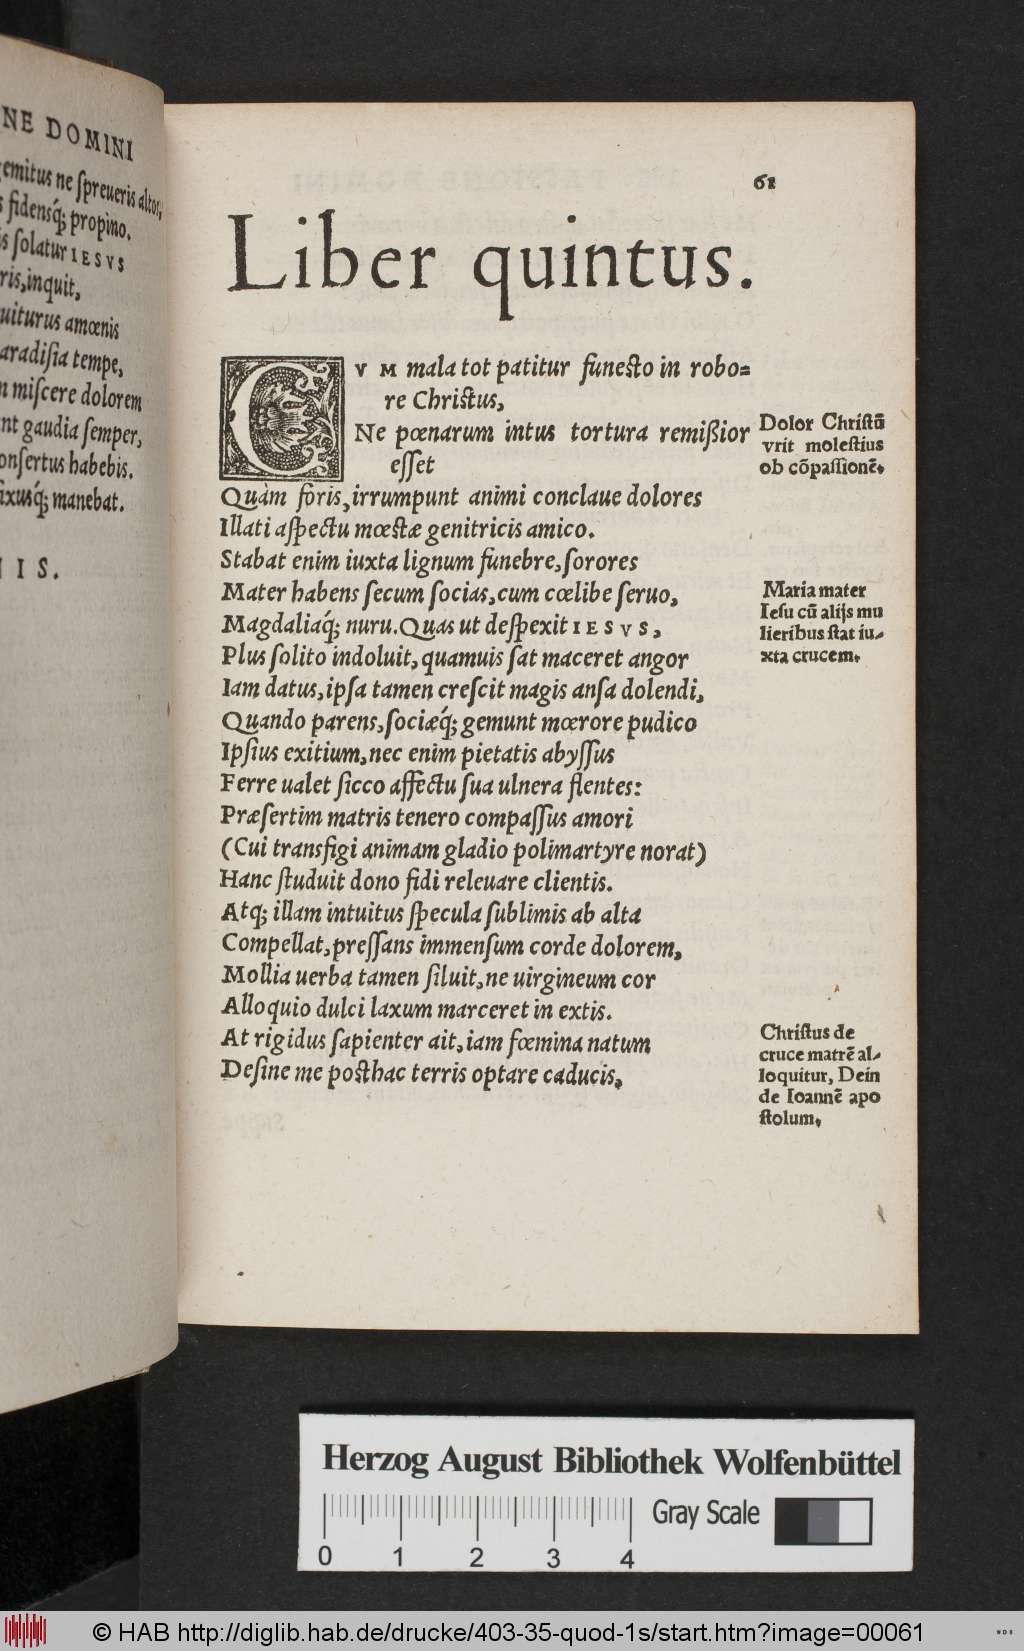 NE DOMINI
emitus ne ſpreueris altos,
s fidensq́; propino.
is ſolatur IESVS
ris, inquit,
uiturus amœnis
aradiſia tempe,
n miſcere dolorem
nt gaudia ſemper,
onſertus habebis.
ixusq́; manebat.
IIS.
61
Liber quintus.
CVM mala tot patitur funesto in robo=
re Christus,
Ne pœnarum intus tortura remißior
eſſet
Quàm foris, irrumpunt animi conclaue dolores
Illati aſpectu mœstæ genitricis amico.
Stabat enim iuxta lignum funebre, ſorores
Mater habens ſecum ſocias, cum cœlibe ſeruo,
Magdaliaq́; nuru. Quas ut deſpexit IESVS,
Plus ſolito indoluit, quamuis ſat maceret angor
Iam datus, ipſa tamen creſcit magis anſa dolendi,
Quando parens, ſociæq́; gemunt mœrore pudico
Ipſius exitium, nec enim pietatis abyſſus
Ferre ualet ſicco affectu ſua ulnera flentes:
Præſertim matris tenero compaſſus amori
(Cui transfigi animam gladio polimartyre norat)
Hanc ſtuduit dono fidi releuare clientis.
Atq; illam intuitus ſpecula ſublimis ab alta
Compellat, preſſans immenſum corde dolorem,
Mollia uerba tamen ſiluit, ne uirgineum cor
Alloquio dulci laxum marceret in extis.
At rigidus ſapienter ait, iam fœmina natum
Deſine me posthac terris optare caducis,
Dolor Chriſtū
vrit moleſtius
ob cōpaſſionē.
Maria mater
Ieſu cū alijs mu
lieribus ſtat iu-
xta crucem.
Chriſtus de
cruce matrē al-
loquitur, Dein
de Ioannē apo
ſtolum.
Herzog August Bibliothek Wolfenbüttel
Gray Scale
0 1 2 3 4
© HAB http://diglib.hab.de/drucke/403-35-quod-1s/start.htm?image=00061